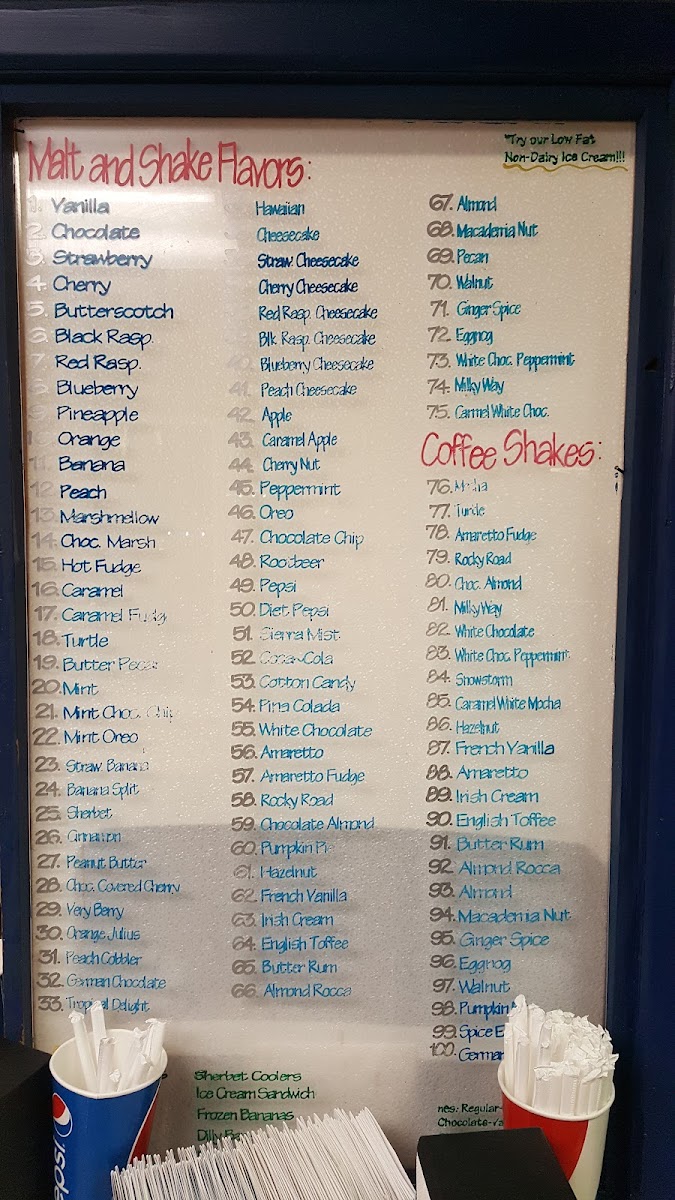 Malt and Shake Flavors:
1. Vanilla
2. Chocolate
3. Strawberry
4. Cherry
5. Butterscotch
6. Black Rasp.
7. Red Rasp.
8. Blueberry
9. Pineapple
10. Orange
11. Banana
12. Peach
13. Marshmellow
14. Choc. Marsh
15. Hot Fudge
16. Caramel
17. Caramel Fudg
18. Turtle
19. Butter Pecan
20. Mint
21. Mint Choc. Chip
22. Mint Oreo
23. Straw. Banana
24. Banana Split
25. Sherbet
26. Cinnamon
27. Peanut Butter
28. Choc. Covered Cherry
29. Very Berry
30. Orange Julius
31. Peach Cobbler
32. German Chocolate
33. Tropical Delight
Hawaiian
Cheesecake
Straw. Cheesecake
Cherry Cheesecake
Red Rasp. Cheesecake
Blk. Rasp. Cheesecake
40. Blueberry Cheesecake
41. Peach Cheesecake
42. Apple
43. Caramel Apple
44. Cherry Nut
45. Peppermint
46. Oreo
47. Chocolate Chip
48. Rootbeer
49. Pepsi
50. Diet Pepsi
51. Sierra Mist
52. Coca-Cola
53. Cotton Candy
54. Pina Colada
55. White Chocolate
56. Amaretto
57. Amaretto Fudge
58. Rocky Road
59. Chocolate Almond
60. Pumpkin Pie
61. Hazelnut
62. French Vanilla
63. Irish Cream
64. English Toffee
65. Butter Rum
66. Almond Rocca
"Try our Low Fat
Non-Dairy Ice Cream!!!
67. Almond
68. Macadamia Nut
69. Pecan
70. Walnut
71. Ginger Spice
72. Eggnog
73. White Choc. Peppermint
74. Milky Way
75. Carmel White Choc.
Coffee Shakes:
76. Mocha
77. Turtle
78. Amaretto Fudge
79. Rocky Road
80. Choc. Almond
81. Milky Way
82. White Chocolate
83. White Choc. Peppermint
84. Snowstorm
85. Caramel White Mocha
86. Hazelnut
87. French Vanilla
88. Amaretto
89. Irish Cream
90. English Toffee
91. Butter Rum
92. Almond Rocca
93. Almond
94. Macadamia Nut
95. Ginger Spice
96. Eggnog
97. Walnut
98. Pumpkin
99. Spice E
100. German
Sherbet Coolers
Ice Cream Sandwich
Frozen Bananas
Dilly Ba
nes: Regular-
Chocolate-
pepsi